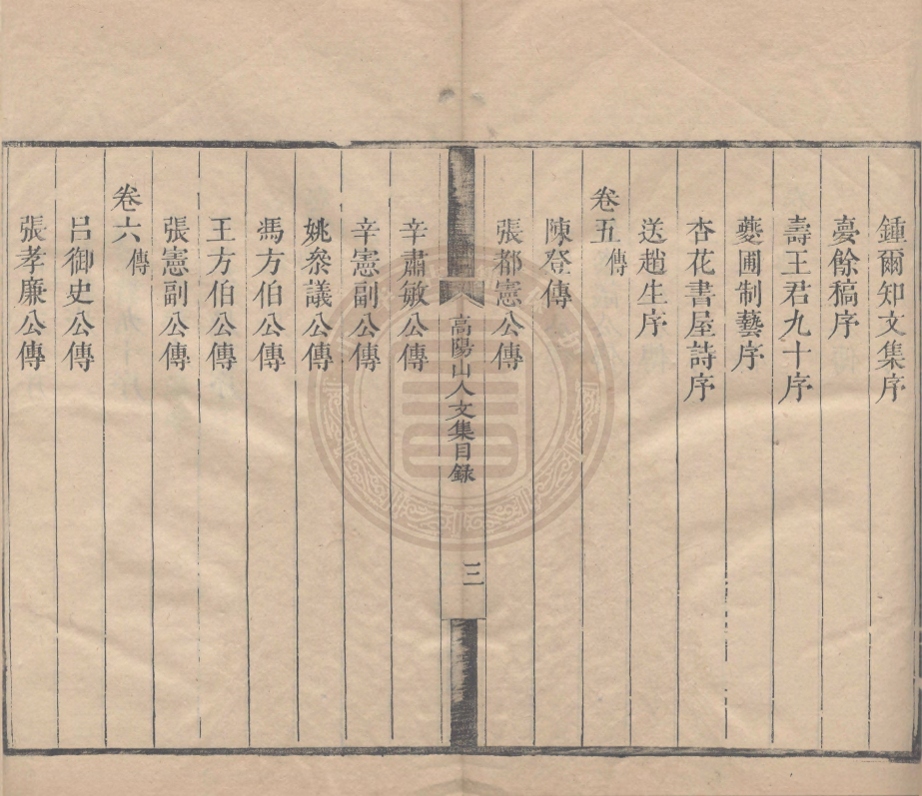 鍾爾知文集序
夣餘稿序
壽王君九十序
夔圃制藝序
杏花書屋詩序
送趙生序
卷五 傳
陳登傳
張都憲公傳
高陽山人文集目錄 三
辛肅敏公傳
辛憲副公傳
姚叅議公傳
馮方伯公傳
王方伯公傳
張憲副公傳
卷六 傳
呂御史公傳
張孝廉公傳